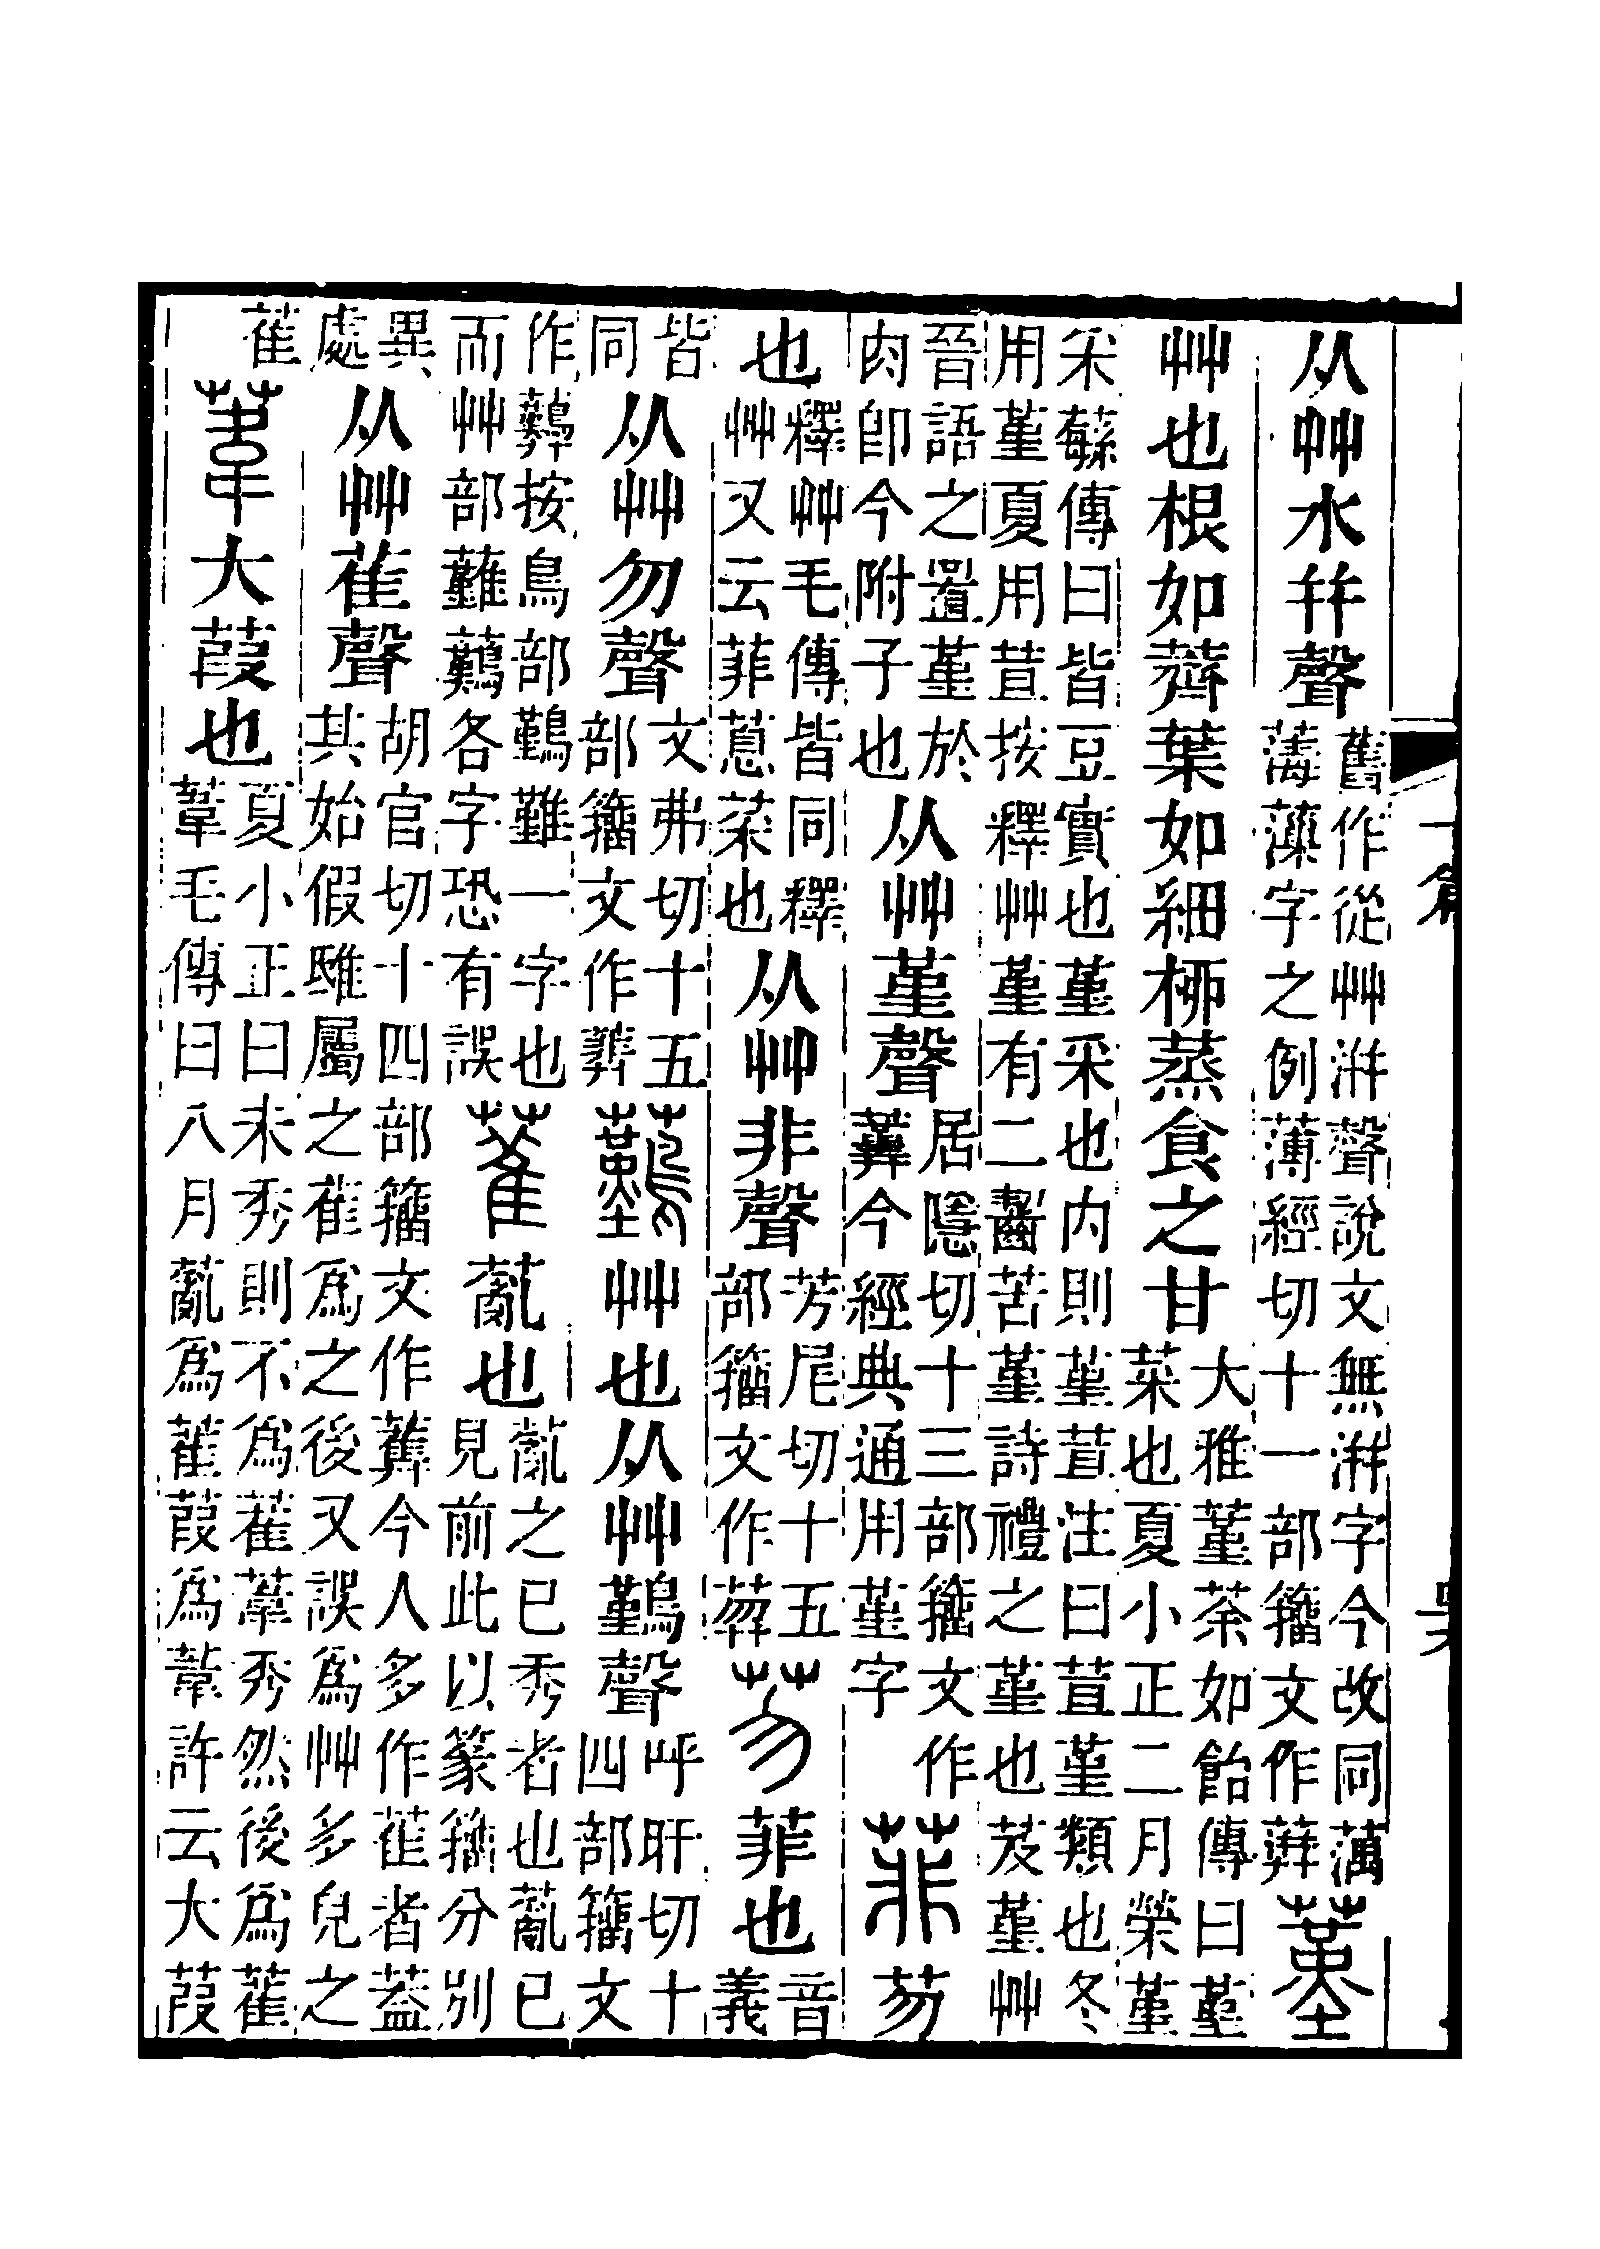 从艸水幷聲
舊作從艸洴聲說文無洴字今改同蕅
藻字之例薄經切十一部籒文作
菫
艸也根如薺葉如細桺蒸食之甘
大雅菫荼如飴傳曰菫
菜也夏小正二月榮菫
采蘩傳曰皆豆實也菫采也內則菫荁注曰荁菫類也冬
用菫夏用荁按釋艸菫有二齧苦菫詩禮之菫也芨菫艸
晉語之置菫於
肉卽今附子也
从艸菫聲
居隱切十三部籒文作
今經典通用菫字
菲芴
也
釋艸毛傳皆同釋
艸又云菲蒠菜也
从艸非聲
芳尾切十五
部籒文作
芴菲也
音
義
皆
同
从艸勿聲
文弗切十五
部籒文作
𦿏艸也从艸鷬聲
呼旰切十
四部籒文
作按鳥部鷬難一字也
而艸部各字恐有誤
雚薍也
薍之已秀者也薍已
見前此以篆籒分別
異
處
从艸萑聲
胡官切十四部籒文作今人多作萑者蓋
其始假鴟屬之萑爲之後又誤爲艸多皃之
萑
葦大葭也
夏小正曰未秀則不爲雚葦秀然後爲雚
葦毛傳曰八月薍爲雚葭爲葦許云大葭
一篇